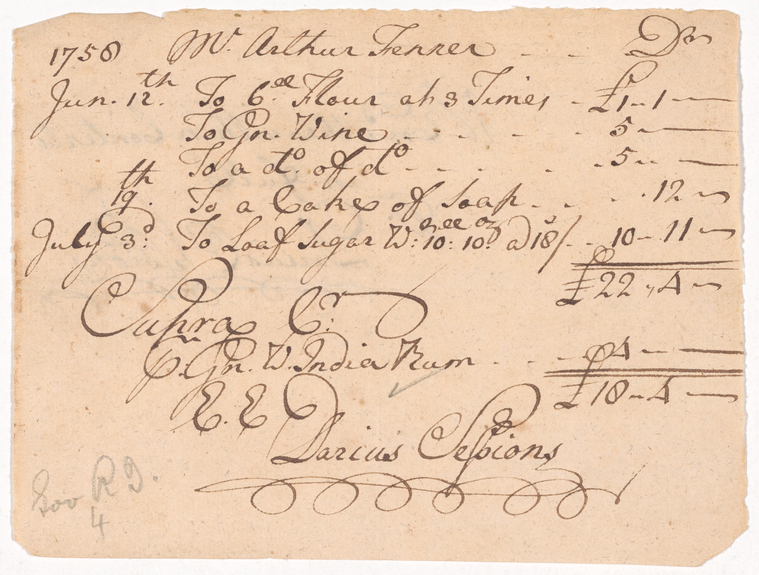 1758 Mr. Arthur Fenner - - Dr
Jun. 12th. To 6ll Flour at 3 Times - £1 - 1 -
To Gn. Wine - - - - 5 -
To a do. of do - - - - 5 - -
19th. To a Cake of Soap - - - 12 -
July 3d. To Loaf Sugar W: 10ll: 10oz. a 18/ - 10 - 11 -
£22 - 4 -
Supra Cr
Gn. W. India Rum - - - 4 - -
£18 - 4 -
E. E
Darius Sessions
R I.
4